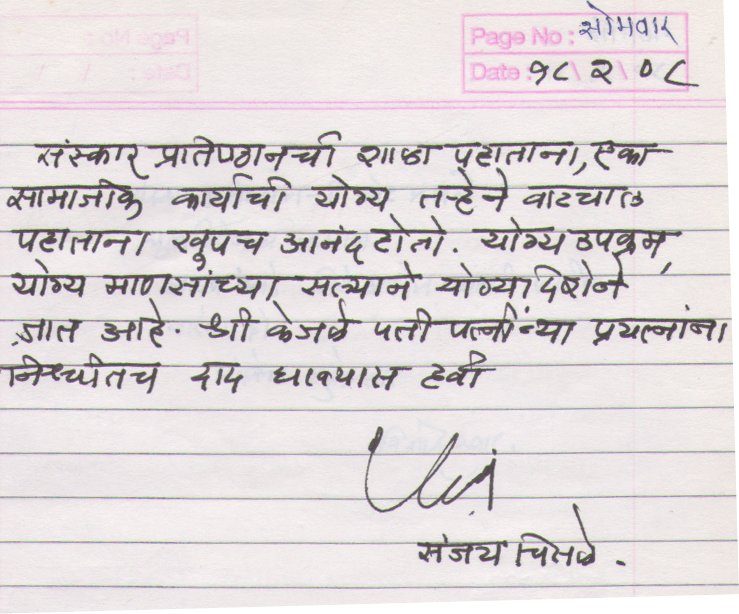 Page No : सोमवार
Date : १८ \ २ \ ०८
संस्कार प्रतिष्ठानची शाळा पहाताना, एका
सामाजीक कार्याची योग्य तऱ्हेने वाटचाल
पहाताना खुपच आनंद होतो. योग्य उपक्रम,
योग्य माणसांच्या सल्याने योग्य दिशेने
जात आहे. श्री केजळे पती पत्नींच्या प्रयत्नांना
निश्चीतच दाद द्यावयास हवी
संजय चितळे.